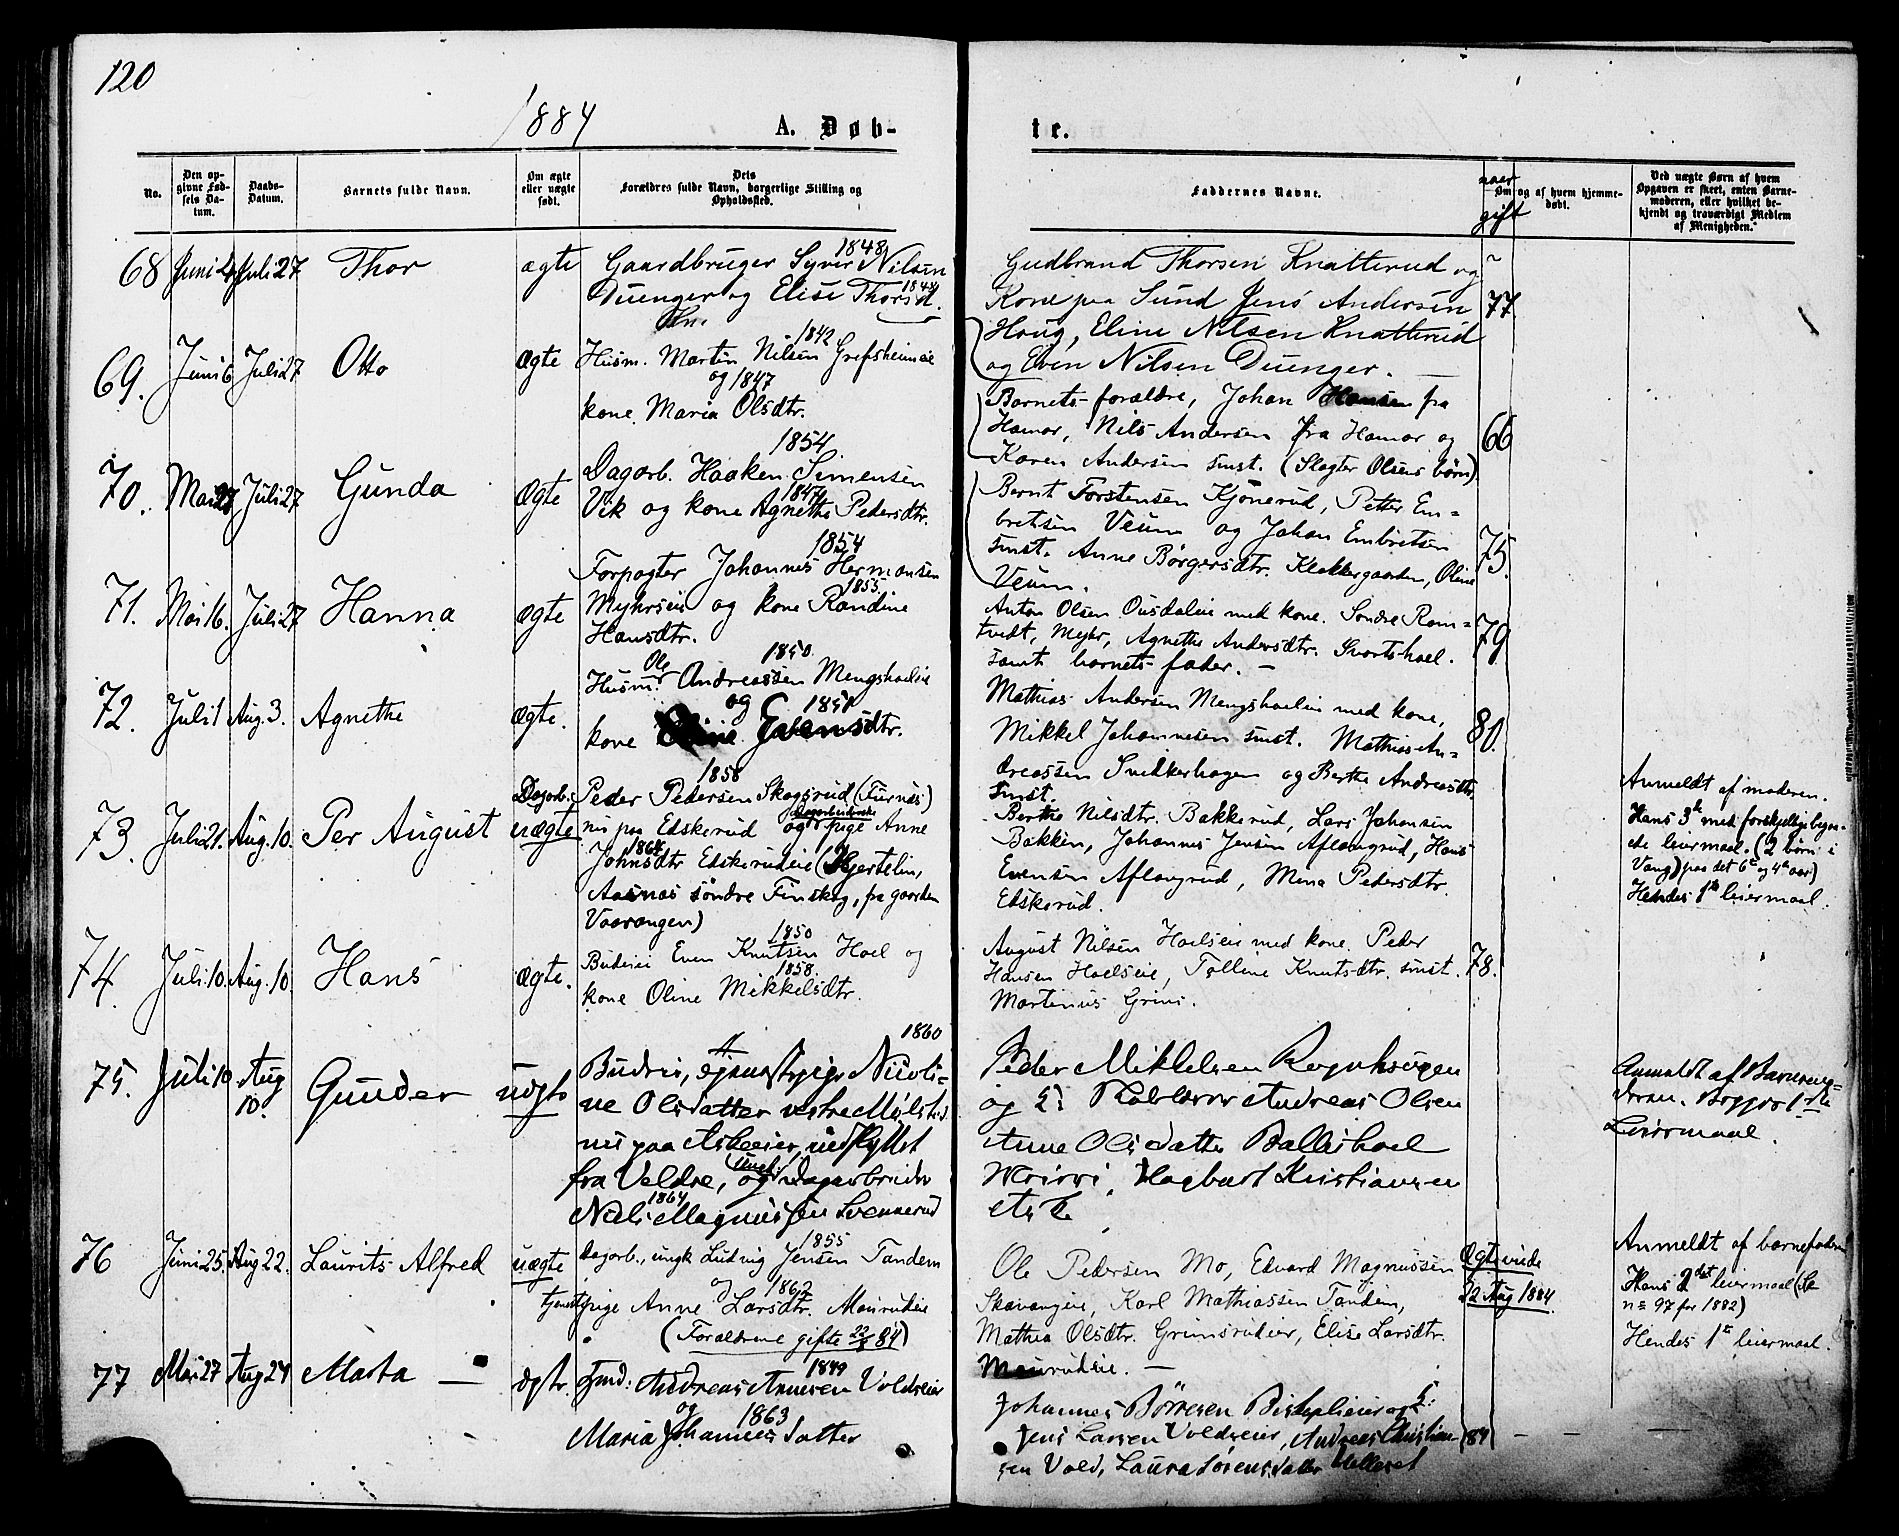 120
1884
A. Døb-
te.
No.
Den op-
givne Fød-
sels Da-
tum.
Daabs-
Datum.
Barnets fulde Navn.
Om ægte
eller uægte
født.
Dets
Forældres fulde Navn, borgerlige Stilling og
Opholdssted.
Faddernes Navne.
naar
gift
Om og af hvem hjemme-
døbt.
Ved uægte Børn af hvem
Opgaven er skeet, enten Barne-
moderen, eller hvilket be-
kjendt og troværdigt Medlem
af Menigheden.
68 Juni Juli 27 Thor ægte
1848
Gaardbruger Syver Nilsen
1848
Duenger og Elise Thorsd.
Gudbrand Thorsen Knatterud og
Kone paa Sund Jens Andersen
Houg, Eline Nilsen Knatterud
og Even Nilsen Duenger. —
77
69. Juni 6 Juli 27 Otto ægte
1842
Husm. Martin Nilsen Grefsheimeie
og 1847
kone Maria Olsdtr.
Barnets forældre, Johan Hansen fra
Hamar, Nils Andersen fra Hamar og
Karen Andersen smst. (Slagter Olsens børn)
66
70. Mai 27 Juli 27 Gunda Ægte
1854
Dagarb. Haaken Simensen
1847
Vik og kone Agnethe Pedersdtr.
Bernt Torstensen Kjönerud, Petter Em=
bretsen Veum og Johan Embretsen
smst. Anne Börgersdtr. Klokkergaarden, Oline
Veum.
75.
71. Mai 16. Juli 27 Hanna ægte
1854
Forpagter Johannes Hermansen
1855
Myhrseie og kone Randine
Hansdtr.
Anton Olsen Ousdaleie med kone. Sondre Ram=
tvedt, Myhr, Agnethe Andersdtr. Svartshoel.
samt barnets fader. —
79
72. Juli 1 Aug. 3. Agnethe ægte.
Ole 1850
Husm. Andreassen Mengshoeleie
og 1851
kone Oline Evensdtr.
Mathias Andersen Mengshoeleie med kone,
Mikkel Johannesen smst. Mathias An=
dreassen Snekkerhagen og Berthe Andreasdtr.
smst.
80.
73. Juli 21. Aug. 10. Per August uægte
1858
Dagarb. Peder Pedersen Skogsrud (Furnes)
nu paa Edskerud og pige Anne
1864
Johnsdtr Edskerudeie (Hjertelin,
Aasnæs söndre Finskog, fra gaarden
Vaarangen)
Berthe Nilsdtr. Bakkerud, Lars Johansen
Bakken, Johannes Jensen Aflangrud, Hans
Evensen Aflangrud, Mina Pedersdtr.
Edskerud.
Anmeldt af moderen.
Hans 3de med forskjellige begaa-
ede leiermaal. (2 børn i
Vang) paa det 6te og 4de aar)
Hendes 1ste leiermaal.
74. Juli 10. Aug. 10. Hans ægte.
1850
Budeiei Even Knutsen Hoel og
1858.
kone Oline Mikkelsdtr.
August Nilsen Hoelseie med kone. Peder
Hansen Hoelseie, Tolline Knutsdtr. smst.
Martinus Grini.
78.
75. Juli 10 Aug 10. Gunder uægte
1860
Budeie, Tjenestepige Nicoli=
ne Olsdatter vestre
nu paa indflyttet
fra Veldre, og Dagarbeider
1864
Nils Magnussen
Peder Mikkelsen
og Andreas Olsen
Anne Olsdatter Ballishoel
Hagbart Kristiansen
Anmeldt af Barnemo=
deren. Begges 1ste
Leiermaal.
76 Juni 25. Aug 22. Laurits Alfred uægte
1855
Dagarb., ungk. Ludvig Jensen Tandem
og 1862
tjenestpige Anne Larsdtr. Maurudeie
(Forældrene gifte 22/8 84)
Ole Pedersen Mo, Edvard Magnussen
Skavangeie, Karl Mathiassen Tandem,
Mathea Olsdtr. Grimsrudeier, Elise Larsdtr.
Maurudeie. —
Ægteviede
22 Aug 1884.
Anmeldt af barnefaderen
Hans 2det leiermaal (Se
n= 97 for 1882)
Hendes 1ste leiermaal.
77 Mai 27 Aug 24 Marta — ægte.
1849
Andreas Voldseier
og 1863
Maria Johannesdatter
Johannes Börresen og
Jens Larsen Voldseier, Andreas Christian-
sen Vold, Laura Sörensdatter
84